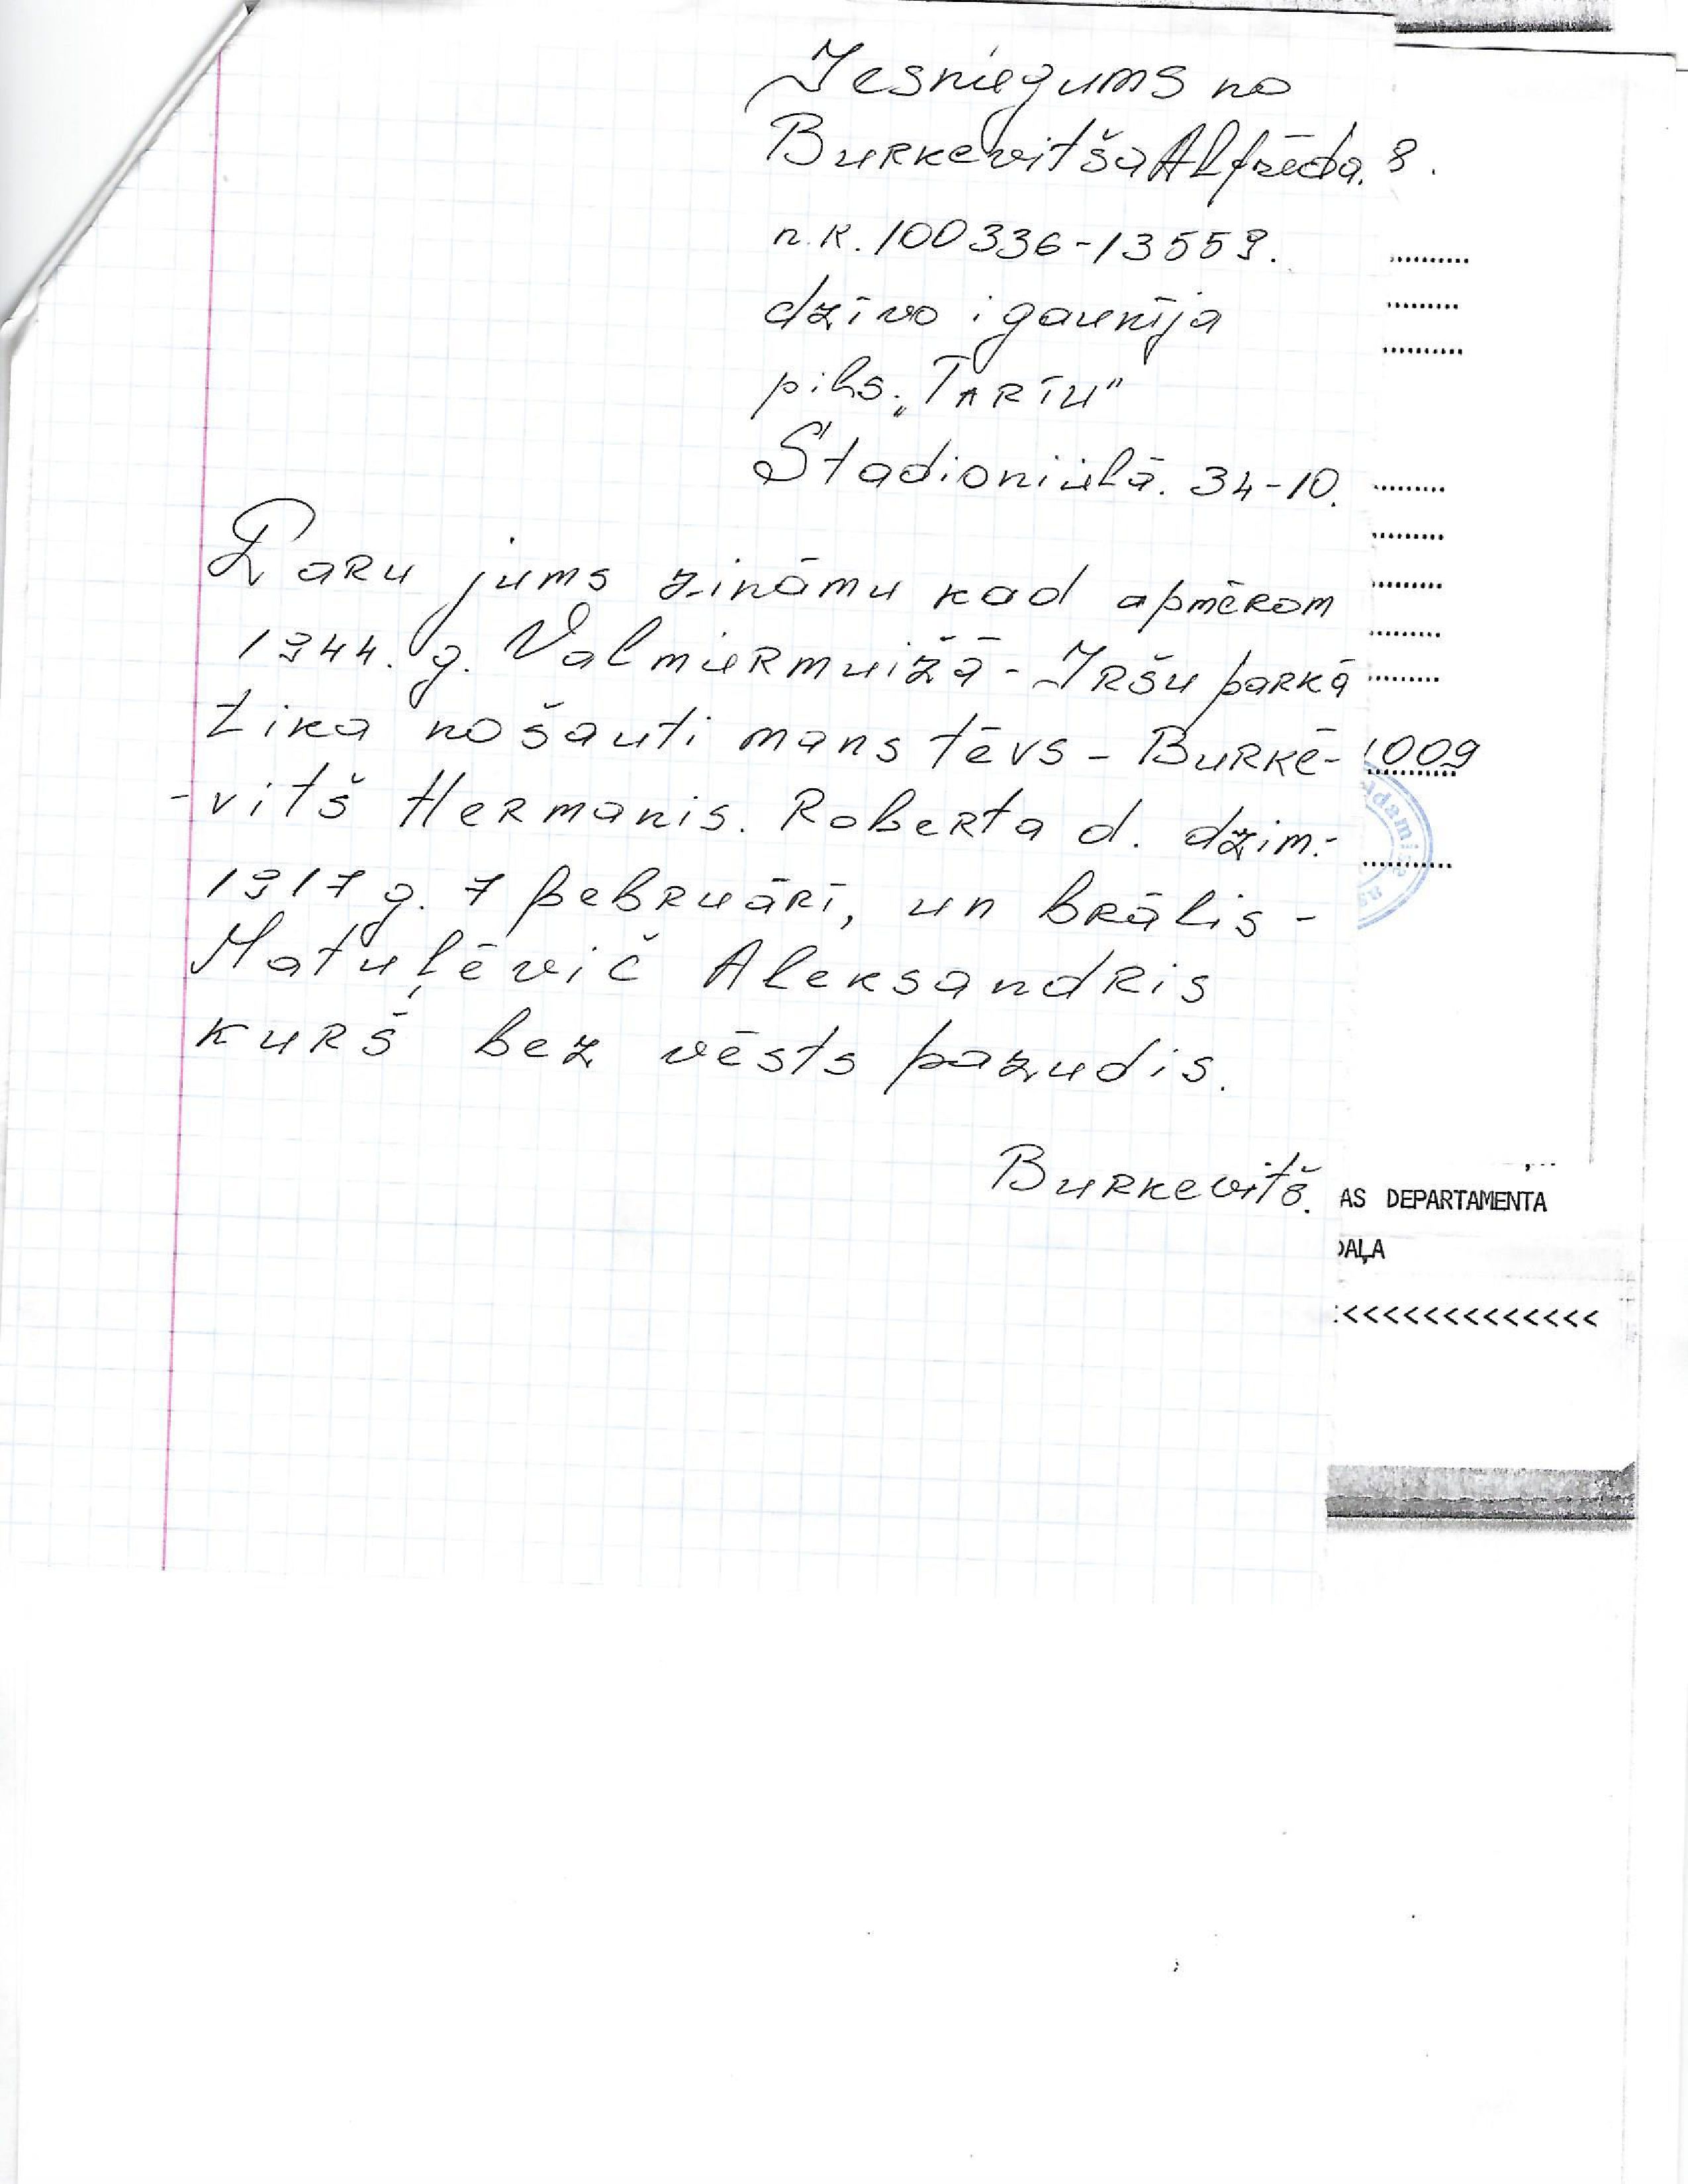 Iesniegums no
Burkevitša Alfrēda. 8.
n.k. 100336-13559.
dzīvo igaunīja
pihs. „TARTU"
Stadioni ielā. 34-10.
Daru jums zināmu kad apmēram
1944. g. Valmiermuižā - Iršu parkā
tika nošauti mans tēvs - Burke-
1009
-vitš Hermanis. Roberta d. dzim:-
Adamis
1917 g. 7 februārī, un brālis -
Matuļēvič Aleksandris
kurš bez vēsts pazudis.
Burkevitš.
AS DEPARTAMENTA
DAĻA
<<<<<<<<<<<<<<